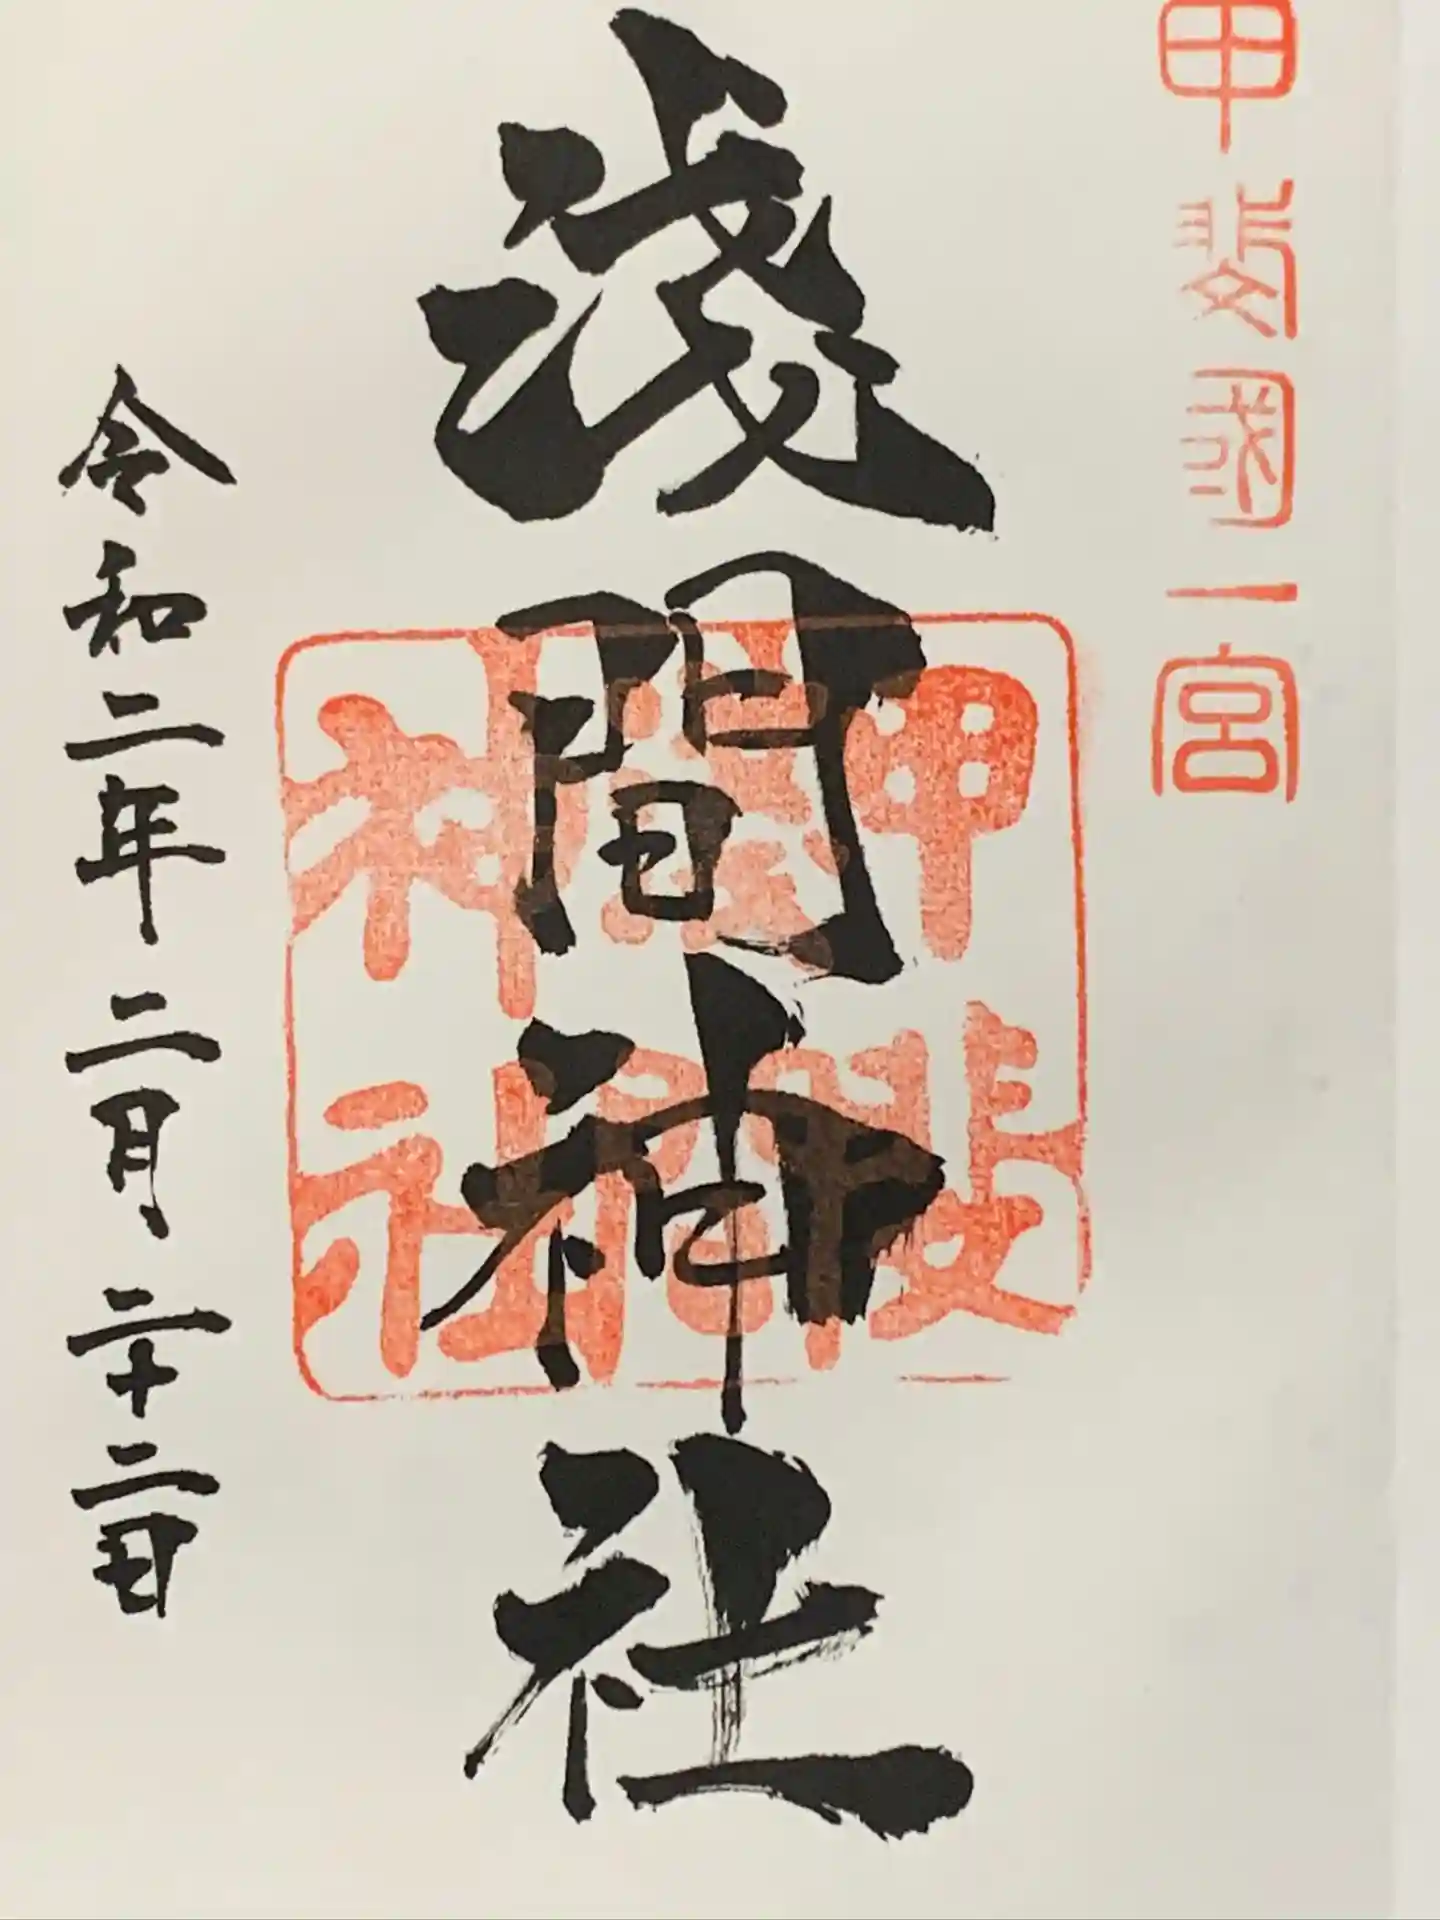 甲斐國一宮
淺間神社
甲斐
淺間
神社
令和二年二月二十二日